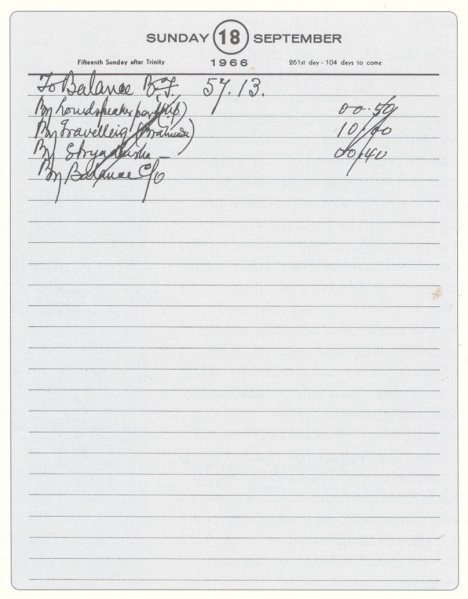 SUNDAY 18 SEPTEMBER
Fifteenth Sunday after Trinity 1966 261st day - 104 days to come
To Balance B.F. 57.13.
By Loudspeaker 00.50
By travelling 10.00
By 00.40
By Balance C/o